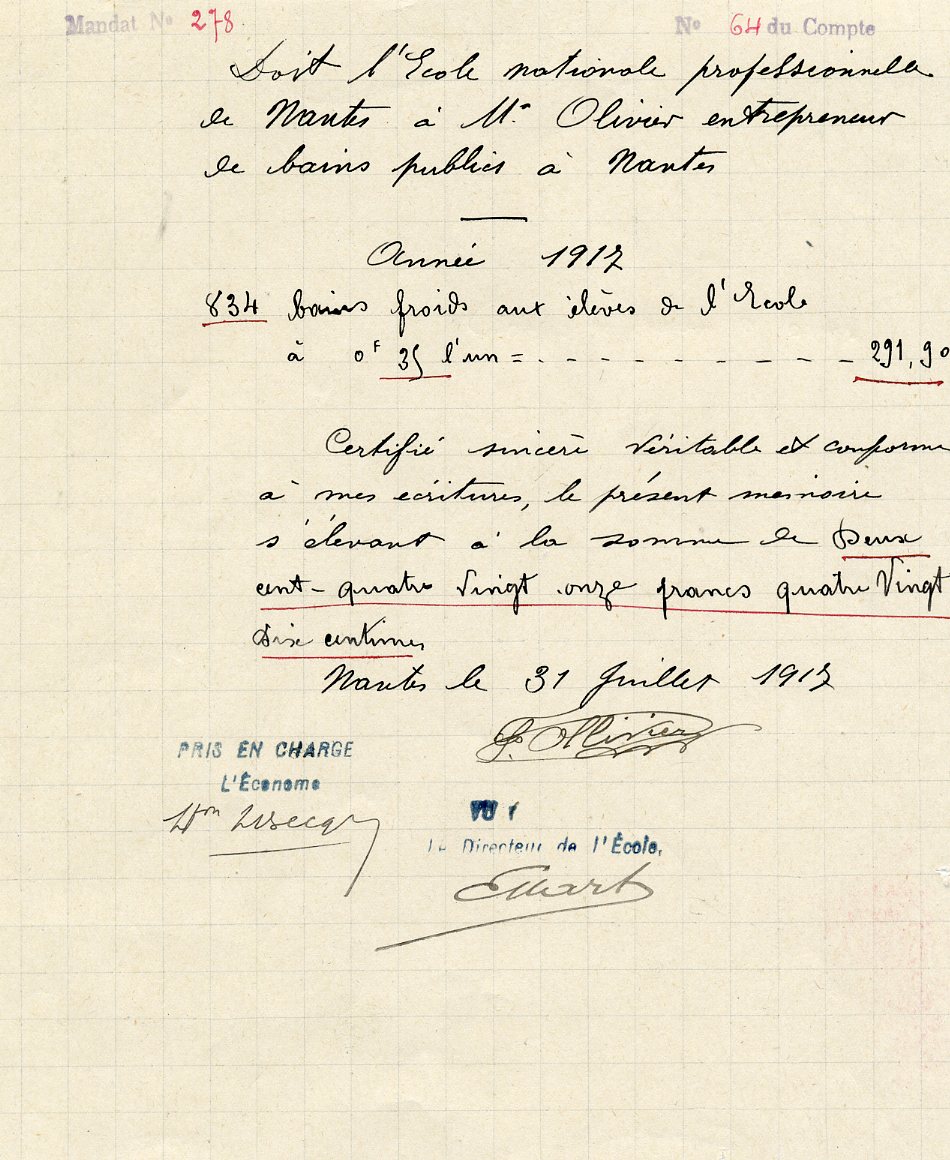 Mandat N° 278. N° 64 du Compte
Doit l'Ecole nationale professionnelle
de Nantes à Mr Olivier entrepreneur
de bains publics à Nantes
Année 1917
834 bains froids aux élèves de l'Ecole
à 0F 35 l'un = . - - - - - - - - - - 291,90
Certifié sincère véritable et conforme
à mes écritures, le présent mémoire
s'élevant à la somme de Deux
cent-quatre Vingt onze francs quatre Vingt
Dix centimes
Nantes le 31 Juillet 1917
Ollivier
PRIS EN CHARGE
L'Économe
VU
Le Directeur de l'École,